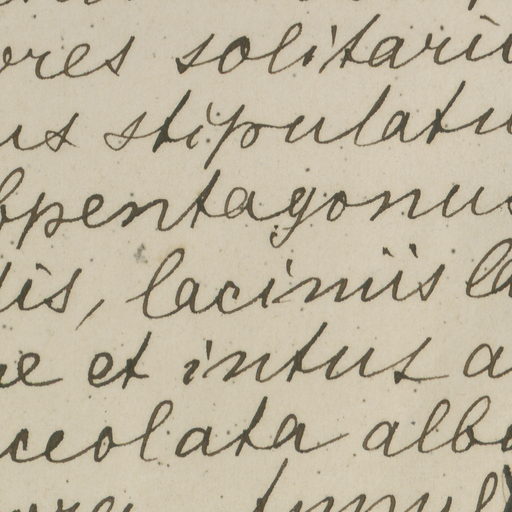 ores solitari
us stipulatu
bpentagonus
lis, laciniis la
ae et intus a
ceolata albo